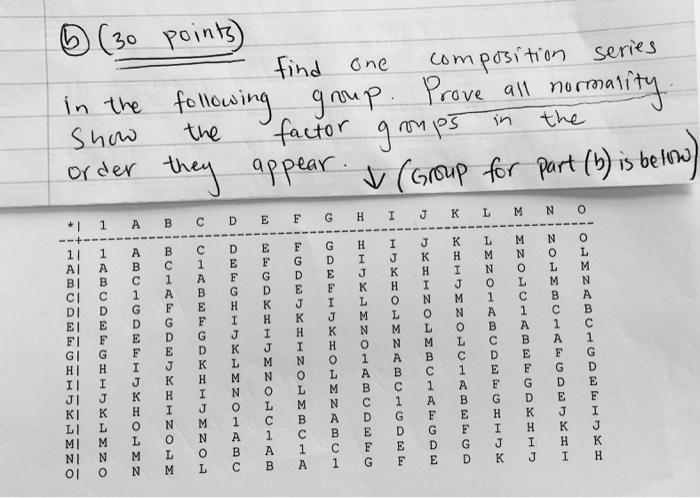 (b) (30 points)
find one composition series
in the following group. Prove all normality.
Show the factor groups in the
order they appear. ↓ (Group for part (b) is below)
*| 1 A B C D E F G H I J K L M N O
--+------------------------------------------------
1| 1 A B C D E F G H I J K L M N O
A| A B C 1 E F G D I J K H M N O L
B| B C 1 A F G D E J K H I N O L M
C| C 1 A B G D E F K H I J O L M N
D| D G F E H K J I L O N M 1 C B A
E| E D G F I H K J M L O N A 1 C B
F| F E D G J I H K N M L O B A 1 C
G| G F E D K J I H O N M L C B A 1
H| H I J K L M N O 1 A B C D E F G
I| I J K H M N O L A B C 1 E F G D
J| J K H I N O L M B C 1 A F G D E
K| K H I J O L M N C 1 A B G D E F
L| L O N M 1 C B A D G F E H K J I
M| M L O N A 1 C B E D G F I H K J
N| N M L O B A 1 C F E D G J I H K
O| O N M L C B A 1 G F E D K J I H